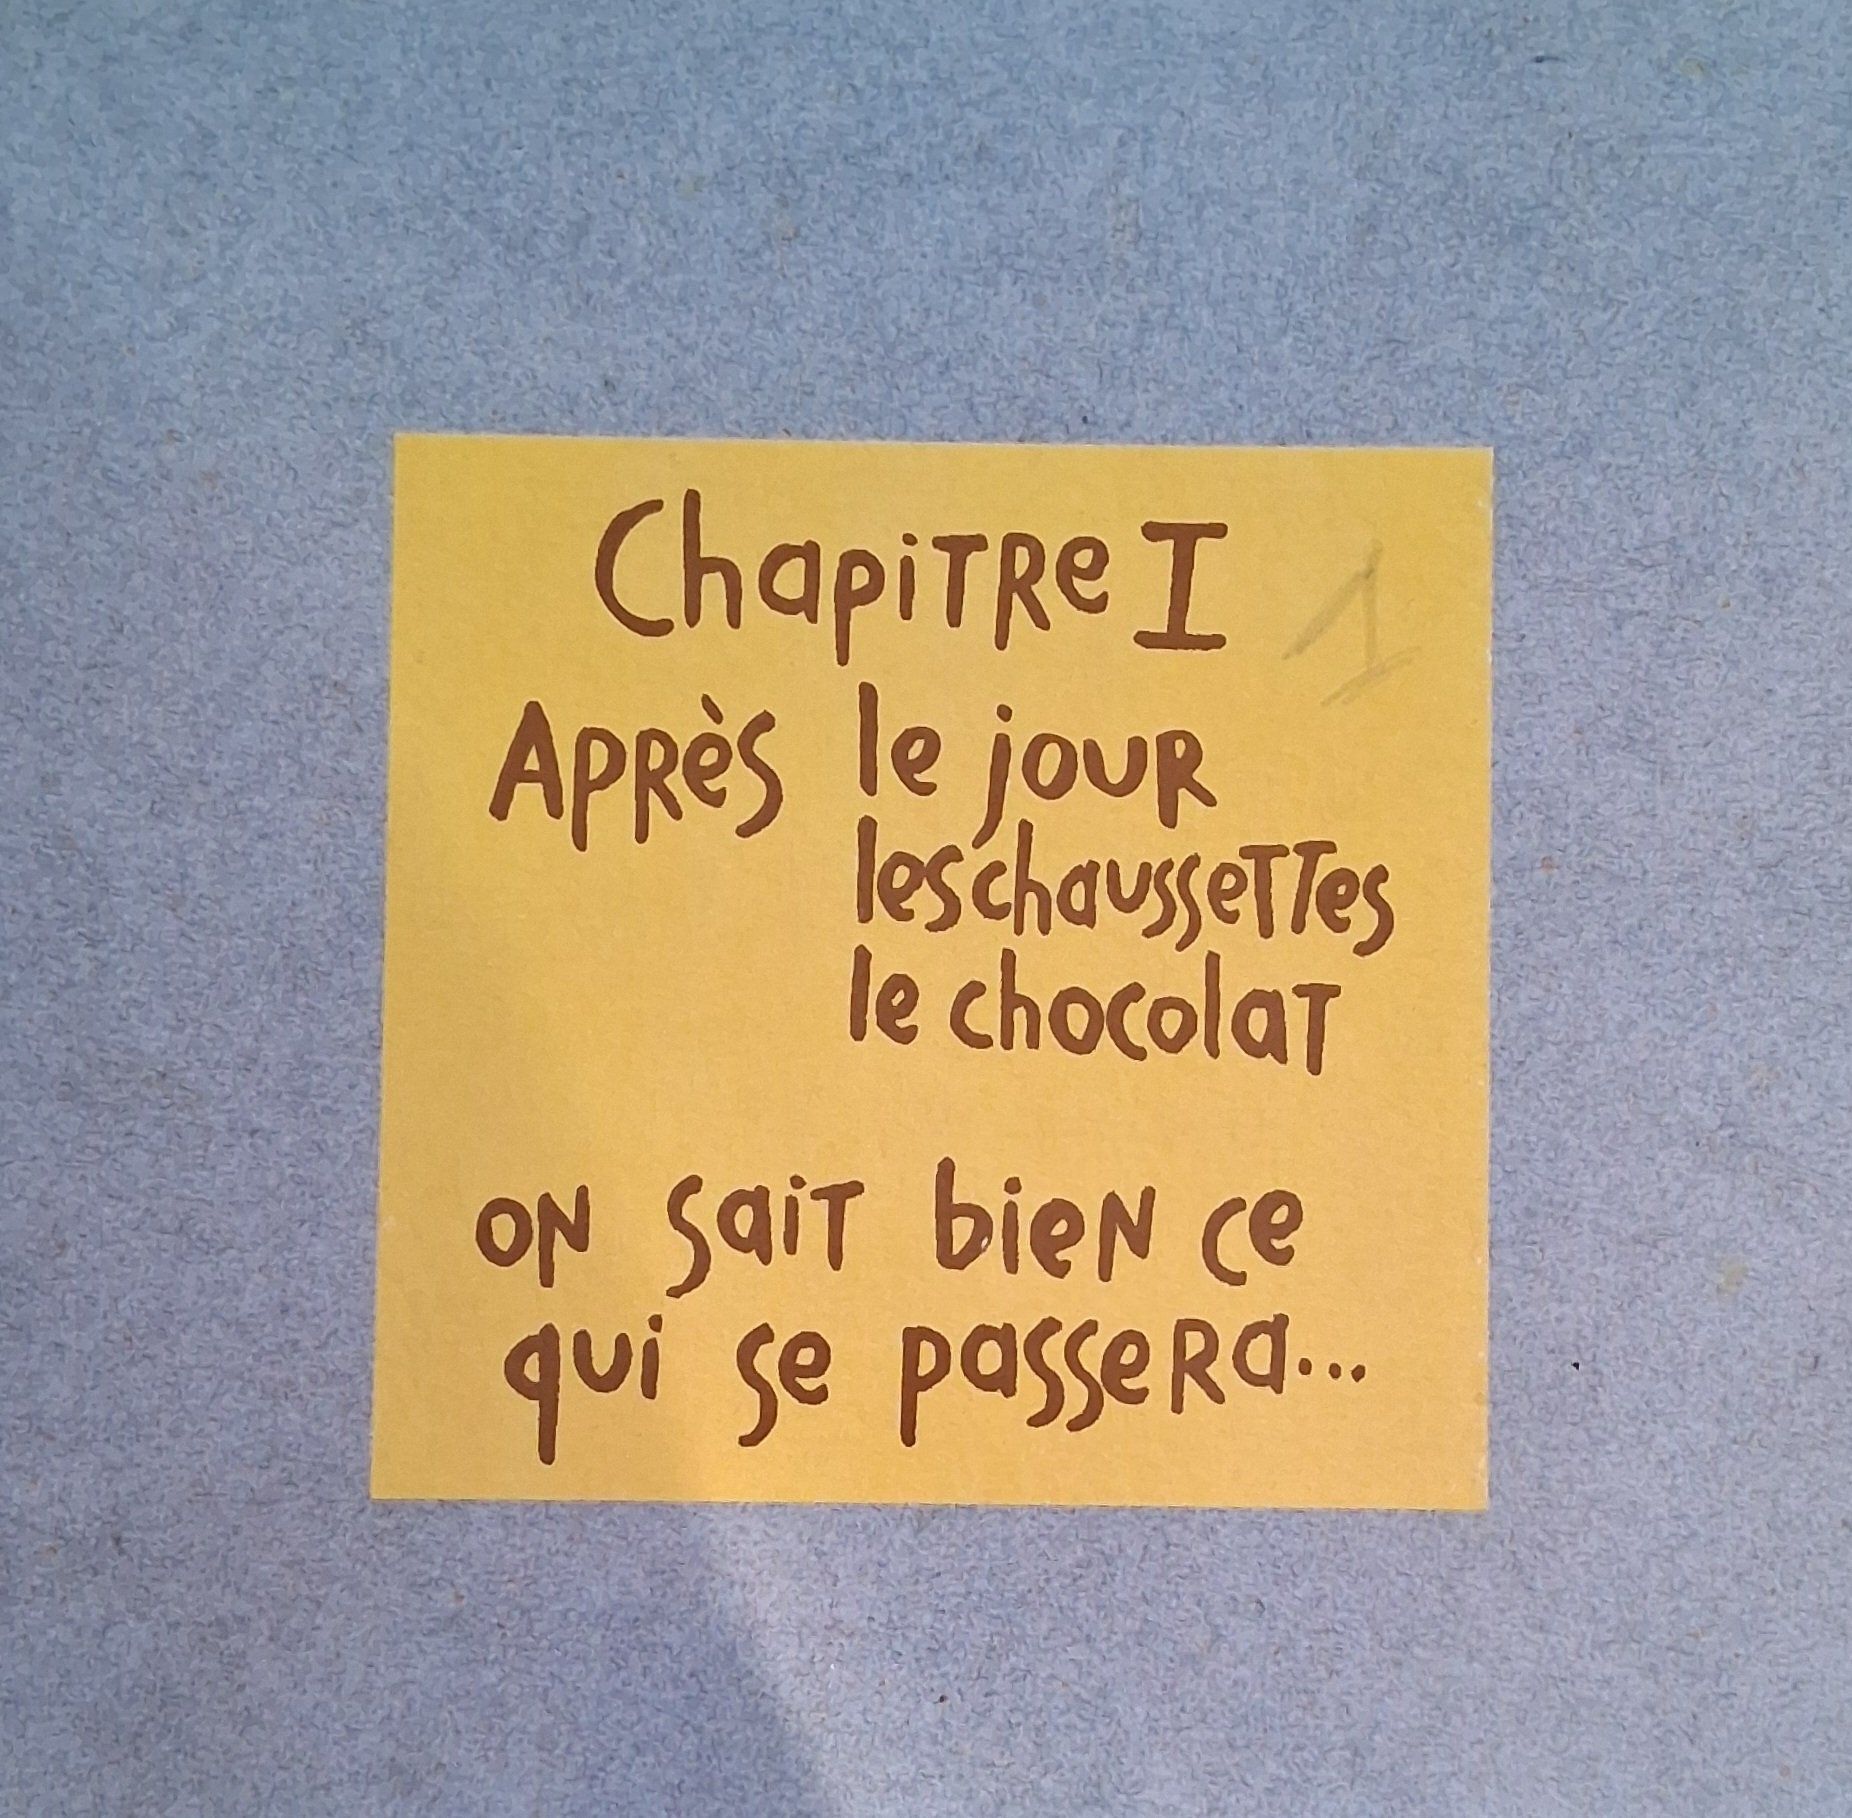 Chapitre I 1
Après le jour
les chaussettes
le chocolat
on sait bien ce
qui se passera...